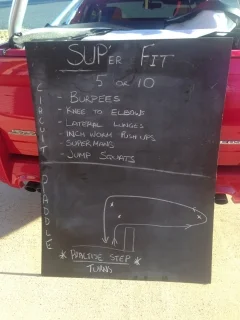 SUP'ER FIT
5 OR 10
CIRCUIT
- BURPEES
- KNEE TO ELBOWS
- LATERAL LUNGES
- INCH WORM PUSH UPS
- SUPERMANS
- JUMP SQUATS
PADDLE
* PRACTISE STEP *
TURNS